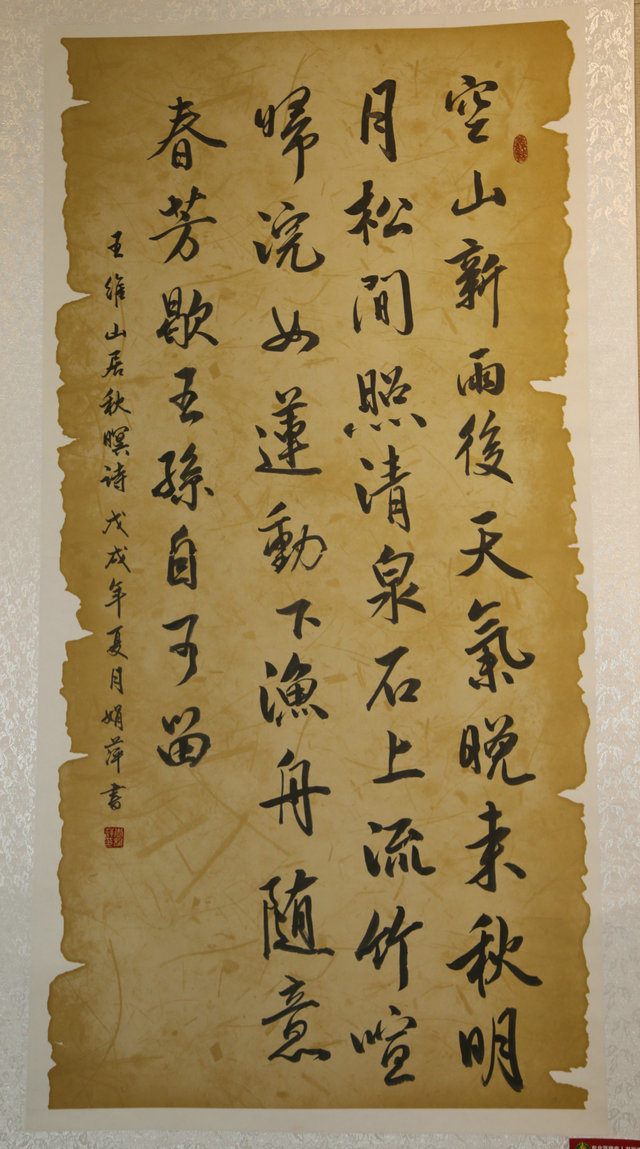 空山新雨後天氣晚来秋明
月松間照清泉石上流竹喧
歸浣女蓮動下漁舟随意
春芳歇王孫自可留
王維山居秋暝詩戊戌年夏月娟萍書